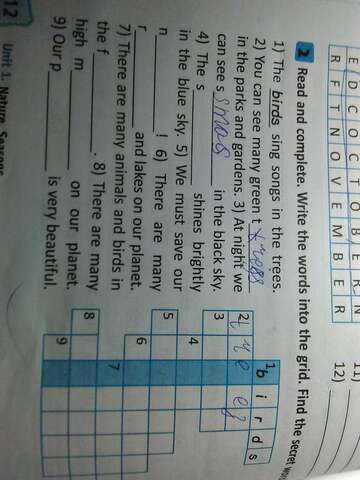 E D C O C T O B E R N
R F T N O V E M B E R
11)
12)
2 Read and complete. Write the words into the grid. Find the secret
1) The birds sing songs in the trees.
2) You can see many green t
in the parks and gardens. 3) At night we
can see s in the black sky.
4) The s shines brightly
in the blue sky. 5) We must save our
n ! 6) There are many
r and lakes on our planet.
7) There are many animals and birds in
the f . 8) There are many
high m on our planet.
9) Our p is very beautiful.
1 b i r d s
2
3
4
5
6
7
8
9
12 Unit 1. Nature. Seasons